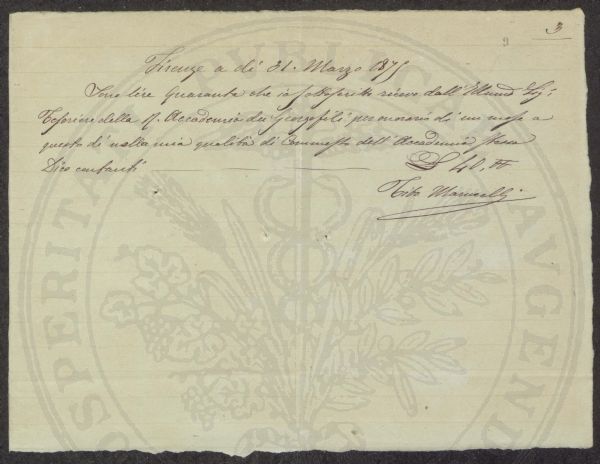 3
9
Firenze a dì 31. Marzo 1875
Sono lire Quaranta che io sottoscritto ricevo dall'Illmo Sig:
Tesoriere della R. Accademia dei Georgofili per onorario di un mese a
questo dì nella mia qualità di Commesso dell'Accademia stessa
Dico contanti £ 40, "
Tito
PROSPERITATI PUBLICAE AUGENDAE